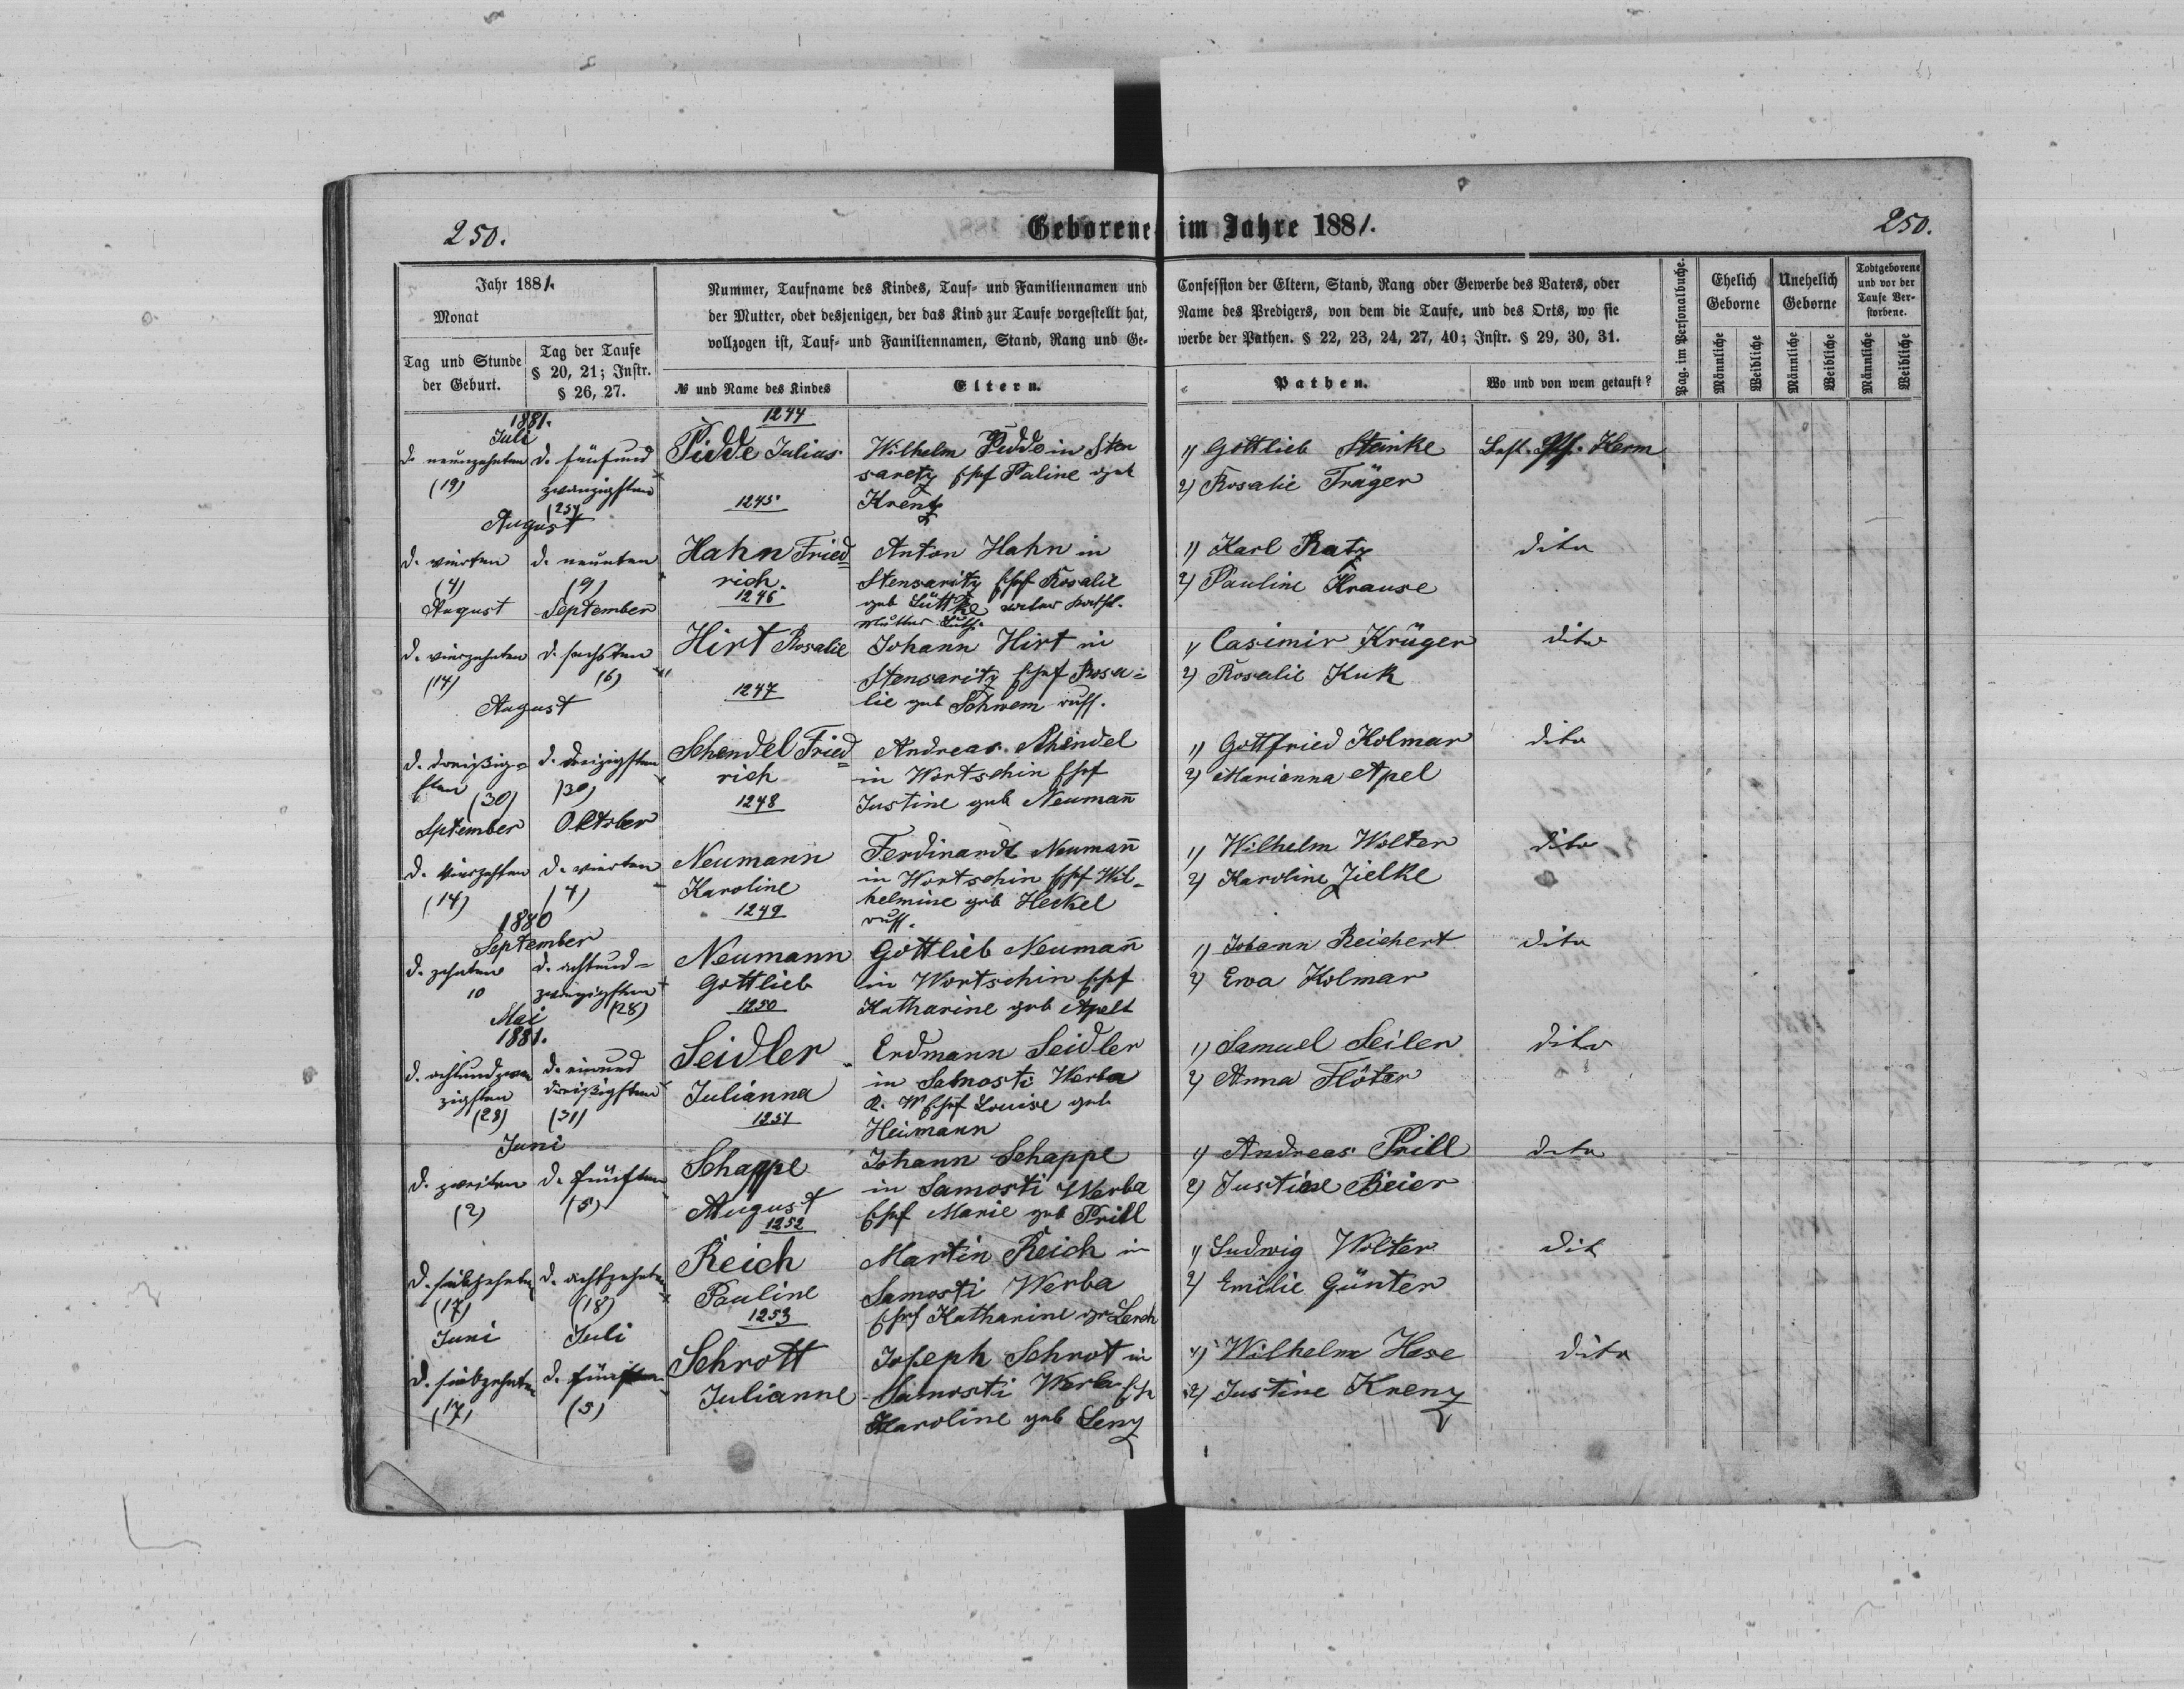 250.
Geborene im Jahre 1881.
250.
Jahr 1881.
Monat
Tag und Stunde der Geburt.
Tag der Taufe § 20, 21; Instr. § 26, 27.
Nummer, Taufname des Kindes, Tauf- und Familiennamen und
der Mutter, oder desjenigen, der das Kind zur Taufe vorgestellt hat,
vollzogen ist, Tauf- und Familiennamen, Stand, Rang und Ge-
№ und Name des Kindes
Eltern.
Confession der Eltern, Stand, Rang oder Gewerbe des Vaters, oder
Name des Predigers, von dem die Taufe, und des Orts, wo sie
werbe der Pathen. § 22, 23, 24, 27, 40; Instr. § 29, 30, 31.
Pathen.
Wo und von wem getauft?
Pag. im Personalbuche.
Ehelich Geborne
Unehelich Geborne
Todtgeborene und vor der Taufe Verstorbene.
Männliche
Weibliche
Männliche
Weibliche
Männliche
Weibliche
1881.
Juli
d. neunzehnten (19)
d. fünfund zwanzigsten (25)
1244
Pidde Julius
Wilhelm Pidde in Sten
saretz Ehf Paline geb
Krentz
1) Gottlieb Steinke
2) Rosalie Träger
Herm
August
d. vierten (4)
d. neunten (9)
1245
Hahn Fried=
rich.
Anton Hahn in
Stensaritz Ehf Rosalie
geb Lüttke vater kathl.
mutter Luth.
1) Karl Ratz
2) Pauline Krause
dito
August
September
d. vierzehnten (14)
d. sechsten (6)
1246
Hirt Rosalie
Johann Hirt in
Stensaritz Ehef Rosa=
lie geb Schwem russ.
1) Casimir Krüger
2) Rosalie Kuk
dito
August
d. dreißig=
sten (30)
d. dreizigsten (30)
1247
Schendel Fried=
rich
Andreas Schendel
in Wortschin Ehf
Justine geb Neumañ
1) Gottfried Kolmar
2) Marianna Apel
dito
September
Oktober
d. vierzehten (14)
d. vierten (4)
1248
Neumann
Karoline
Ferdinandt Neumañ
in Wortschin Ehf Wil-
helmine geb Heckel
russ.
1) Wilhelm Wolter
2) Karoline Zielke
dito
1880
September
d. zehnten 10
d. achtund=
zwanzigsten (28)
1249
Neumann
Gottlieb
Gottlieb Neumañ
in Wortschin Ehf
Katharine geb Apelt
1) Johann Reichert
2) Ewa Kolmar
dito
Mai
1881.
d. achtundzwan
zigsten (28)
d. einund
dreißigsten (31)
1250
Seidler
Julianna
Erdmann Seidler
in Samosti Werba
K. W Ehf Louise geb
Heimann
1) Samuel Seiler
2) Anna Flöter
dito
Juni
d. zweiten (2)
d. fünften (5)
1251
Schappe
August
Johann Schappe
in Samosti Werba
Ehf Marie geb Prill
1) Andreas Prill
2) Justine Beier
dito
d. siebzehnten (17)
d. achtzehnten (18)
1252
Reich
Pauline
Martin Reich in
Samosti Werba
Ehf Katharine gb Lerch
1) Ludwig Wolter
2) Emilie Günter
dit
Juni
Juli
d. siebzehnten (17)
d. fünften (5)
1253
Schrott
Julianne
Joseph Schrot in
Samosti Werba Eh
Karoline geb Lenz
1) Wilhelm Hese
2) Justine Krenz
dito